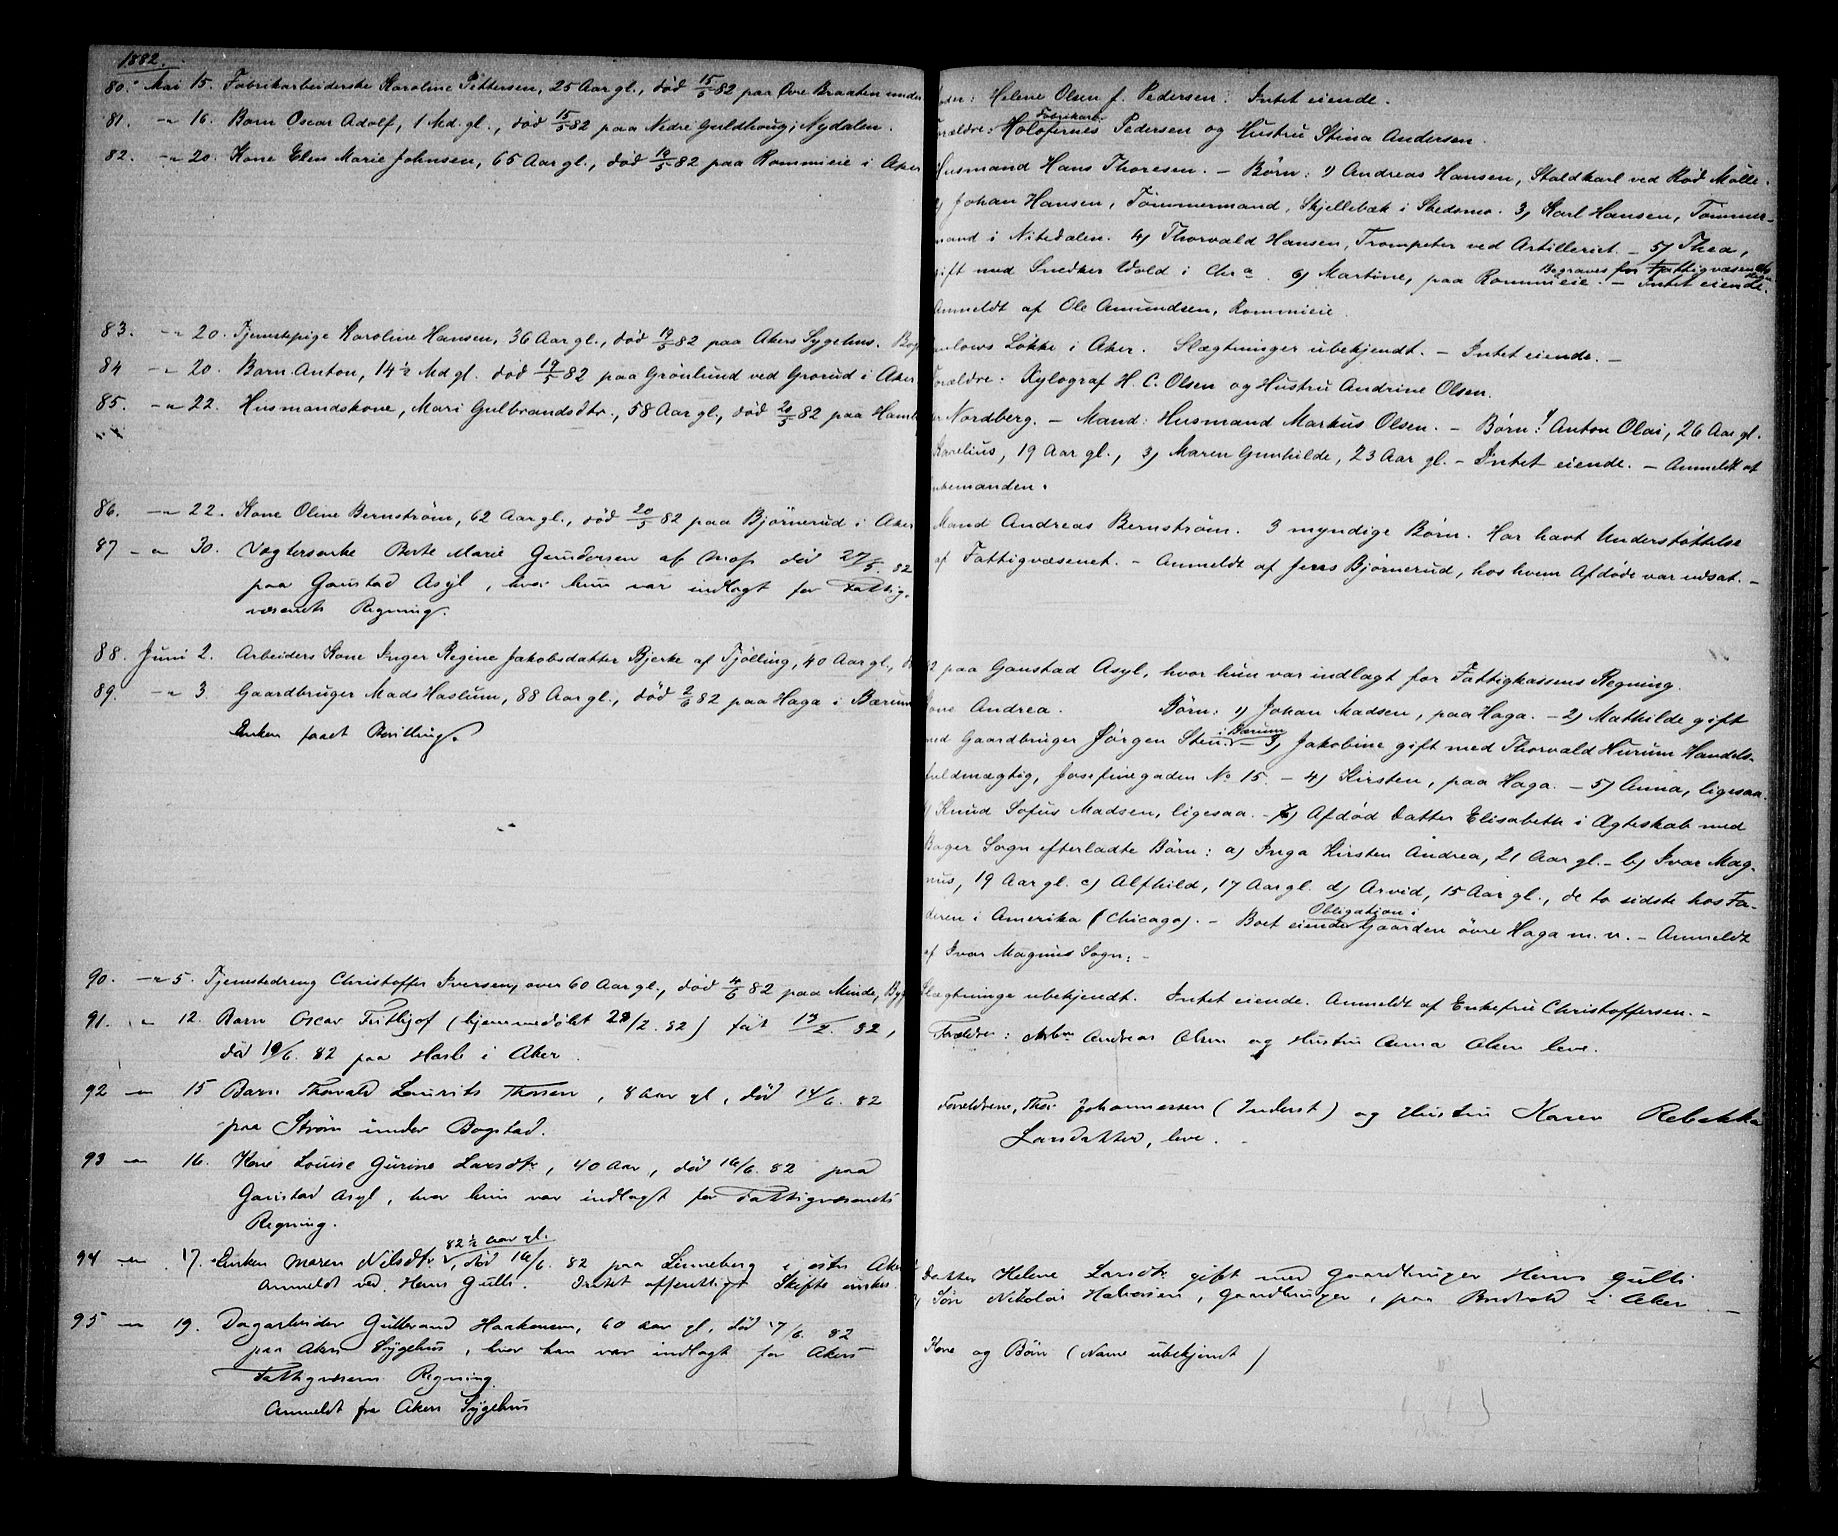 1882.
80. Mai 15. Fabrikarbeiderske Karoline Pettersen, 25 Aar gl., død 15/5 82 paa Øvre Braaten under
81. -"- 16. Barn Oscar Adolf, 1 Md. gl., død 15/5 82 paa Nedre Guldhaug i Nydalen.
82. -"- 20. Kone Elen Marie Johnsen, 65 Aar gl., død 19/5 82 paa Rommieie i Aker
83. -"- 20. Tjenestepige Karoline Hansen, 36 Aar gl., død 19/5 82 paa Akers Sygehus.
84 -"- 20. Barn Anton, 14½ Md gl. død 19/5 82 paa Grönlund ved Grorud i Aker
85. -"- 22. Husmandskone, Mari Gulbrandsdtr., 58 Aar gl., død 20/5 82 paa
86. -"- 22. Kone Oline Bernström, 62 Aar gl., død 20/5 82 paa Bjørnerud i Aker
87 -"- 30. Vægterenke Berte Marie Gundersen af død 27/5. 82
paa Gaustad Asyl, hvor hun var indlagt for Fattig-
væsenets Regning.
88. Juni 2. Arbeiders Kone Inger Regine Jakobsdatter Bjerke af Tjølling, 40 Aar gl.,
89. -"- 3. Gaardbruger Mads Haslum, 88 Aar gl., død 2/6 82 paa Haga i Bærum
Enken faaet Bevilling.
90. -"- 5. Tjenestedreng Christoffer Iversen, over 60 Aar gl., død 4/6 82 paa Minde,
91. -"- 12. Barn Oscar Frithjof (hjemmedøbt 23/2. 82) føt 13/2. 82,
død 10/6. 82 paa Hasle i Aker.
92 -"- 15 Barn Thorvald Laurits Thorsen, 8 Aar gl, død 14/6. 82
paa Strøm under Bogstad.
93 -"- 16. Kone Louise Gurine Larsdtr, 40 Aar, død 16/6. 82 paa
Gaustad Asyl, hvor hun var indlagt for Fattigvæsenets
Regning.
82½ Aar gl.
94 -"- 17. Enken Maren Nilsdtr, død 16/6. 82 paa Linneberg i østre Aker
Anmeldt ved Hans Gulli. Intet offentligt Skifte ønskes.
95 -"- 19. Dagarbeider Gulbrand Haakensen, 60 Aar gl, død 17/6. 82
paa Akers Sygehus, hvor han var indlagt for Akers
Fattigvæsens Regning.
Anmeldt fra Akers Sygehus
Helene Olsen f. Pedersen. Intet eiende.
Fabrikarb.
Holofernes Pedersen og Hustru Stina Andersen.
Husmand Hans Thoresen. - Børn: 1) Andreas Hansen, Staldkarl ved Rød Mølle.
Johan Hansen, Tømmermand, Skjellebæk i Skedsmo. 3) Karl Hansen, Tømmer-
mand i Nitedalen. 4) Thorvald Hansen, Trompeter ved Artilleriet. - 5) Thea,
gift med Snedker Wold i Chra. 6) Martine, paa Rommieie. - Intet eiende.
Begraves for Fattigvæsenets
Anmeldt af Ole Amundsen, Rommieie.
Løkke i Aker. Slægtninger ubekjendt. - Intet eiende. -
Forældre: Xylograf H. C. Olsen og Hustru Andrine Olsen.
Nordberg. - Mand: Husmand Markus Olsen. - Børn: 1) Anton Olai, 26 Aar gl.
Karelius, 19 Aar gl., 3) Maren Gunhilde, 23 Aar gl. - Intet eiende. - Anmeldt af
Enkemanden.
Mand Andreas Bernström. 3 myndige Børn. Har havt Understøttelse
af Fattigvæsenet. - Anmeldt af Jens Bjørnerud, hos hvem Afdøde var udsat. -
82 paa Gaustad Asyl, hvor hun var indlagt for Fattigkassens Regning.
Kone Andrea. Børn: 1) Johan Madsen, paa Haga. - 2) Mathilde gift
i Bærum
med Gaardbruger Jørgen Sten. - 3) Jakobine gift med Thorvald Hurum Handels-
fuldmægtig, Josefinegaden No 15. - 4) Kirsten, paa Haga. - 5) Anna, ligesaa.
6) Knud Sofus Madsen, ligesaa. - 7) Afdød Datter Elisabeth i Ægteskab med
Bager Sogn efterladte Børn: a) Inga Kirsten Andrea, 21 Aar gl. - b) Ivar Mag-
nus, 19 Aar gl. c) Alfhild, 17 Aar gl. d) Arvid, 15 Aar gl., de to sidste hos Fa-
deren i Amerika (Chicago). - Boet eiender Gaarden øvre Haga m. v. - Anmeldt
Obligation i
af Ivar Magnus Sogn. -
Slægtninge ubekjendt. Intet eiende. Anmeldt af Enkefru Christoffersen. -
Forældre: Arbm Andreas Olsen og Hustru Anna Olsen leve.
Forældrene, Thor Johannessen (Inderst) og Hustru Karen Rebekka
Larsdatter, leve.
Datter Helene Larsdtr gift med Gaardbruger Hans Gulli
2) Søn Nikolai Halvorsen, Gaardbruger, paa i Aker. -
Kone og Børn (Navne ubekjendt)